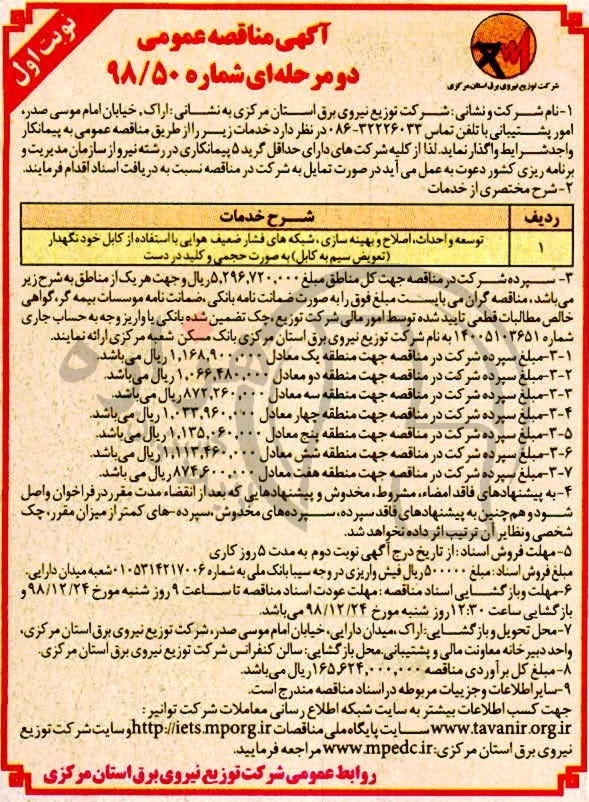 نوبت اول
شرکت توزیع نیروی برق استان مرکزی
آگهی مناقصه عمومی
دو مرحله‌ای شماره ۹۸/۵۰
۱-نام شرکت و نشانی: شرکت توزیع نیروی برق استان مرکزی به نشانی: اراک، خیابان امام موسی صدر،
امور پشتیبانی با تلفن تماس ۳۲۲۲۶۰۳۳-۰۸۶ در نظر دارد خدمات زیر را از طریق مناقصه عمومی به پیمانکار
واجد شرایط واگذار نماید. لذا از کلیه شرکت های دارای حداقل گرید ۵ پیمانکاری در رشته نیرو از سازمان مدیریت و
برنامه ریزی کشور دعوت به عمل می آید در صورت تمایل به شرکت در مناقصه نسبت به دریافت اسناد اقدام فرمایند.
۲-شرح مختصری از خدمات
ردیف شرح خدمات
۱ توسعه و احداث، اصلاح و بهینه سازی، شبکه های فشار ضعیف هوایی با استفاده از کابل خود نگهدار
(تعویض سیم به کابل) به صورت حجمی و کلید در دست
۳- سپرده شرکت در مناقصه جهت کل مناطق مبلغ ۵,۲۹۶,۷۲۰,۰۰۰ ریال و جهت هر یک از مناطق به شرح زیر
می باشد، مناقصه گران می بایست مبلغ فوق را به صورت ضمانت نامه بانکی، ضمانت نامه موسسات بیمه گر، گواهی
خالص مطالبات قطعی تایید شده توسط امور مالی شرکت توزیع چک تضمین شده بانکی یا واریز وجه به حساب جاری
شماره ۱۴۰۰۵۱۰۳۶۵۱ به نام شرکت توزیع نیروی برق استان مرکزی بانک مسکن شعبه مرکزی ارائه نمایند.
۳-۱-مبلغ سپرده شرکت در مناقصه جهت منطقه یک معادل ۱,۱۶۸,۹۰۰,۰۰۰ ریال می‌باشد.
۳-۲-مبلغ سپرده شرکت در مناقصه جهت منطقه دو معادل ۱,۰۶۶,۴۸۰,۰۰۰ ریال می‌باشد.
۳-۳-مبلغ سپرده شرکت در مناقصه جهت منطقه سه معادل ۸۷۲,۲۶۰,۰۰۰ ریال می‌باشد.
۳-۴-مبلغ سپرده شرکت در مناقصه جهت منطقه چهار معادل ۱,۰۳۳,۹۶۰,۰۰۰ ریال می‌باشد.
۳-۵-مبلغ سپرده شرکت در مناقصه جهت منطقه پنج معادل ۱,۱۳۵,۰۶۰,۰۰۰ ریال می‌باشد.
۳-۶-مبلغ سپرده شرکت در مناقصه جهت منطقه شش معادل ۱,۱۱۳,۴۶۰,۰۰۰ ریال می‌باشد.
۳-۷-مبلغ سپرده شرکت در مناقصه جهت منطقه هفت معادل ۸۷۴,۶۰۰,۰۰۰ ریال می باشد.
۴-به پیشنهادهای فاقد امضاء، مشروط، مخدوش و پیشنهادهایی که بعد از انقضاء مدت مقرر در فراخوان واصل
شود و هم چنین به پیشنهادهای فاقد سپرده، سپرده های مخدوش، سپرده-های کمتر از میزان مقرر، چک
شخصی و نظایر آن ترتیب اثر داده نخواهد شد.
۵- مهلت فروش اسناد: از تاریخ درج آگهی نوبت دوم به مدت ۵ روز کاری
مبلغ فروش اسناد: مبلغ ۵۰۰۰۰۰ ریال فیش واریزی در وجه سیبا بانک ملی به شماره ۰۱۰۵۳۱۴۲۱۷۰۰۶ شعبه میدان دارایی.
۶-مهلت و بازگشایی اسناد مناقصه: مهلت عودت اسناد مناقصه تا ساعت ۹ روز شنبه مورخ ۹۸/۱۲/۲۴ و
بازگشایی ساعت ۱۲:۳۰ روز شنبه مورخ ۹۸/۱۲/۲۴ می‌باشد.
۷-محل تحویل و بازگشایی: اراک، میدان دارایی، خیابان امام موسی صدر، شرکت توزیع نیروی برق استان مرکزی،
واحد دبیرخانه معاونت مالی و پشتیبانی. محل بازگشایی: سالن کنفرانس شرکت توزیع نیروی برق استان مرکزی.
۸-مبلغ کل برآوردی مناقصه ۱۶۵,۶۲۴,۰۰۰,۰۰۰ ریال می‌باشد.
۹-سایر اطلاعات و جزییات مربوطه در اسناد مناقصه مندرج است.
جهت کسب اطلاعات بیشتر به سایت شبکه اطلاع رسانی معاملات شرکت توانیر:
www.tavanir.org.ir سایت پایگاه ملی مناقصات http://iets.mporg.ir و سایت شرکت توزیع
نیروی برق استان مرکزی: www.mpedc.ir مراجعه فرمایید.
روابط عمومی شرکت توزیع نیروی برق استان مرکزی